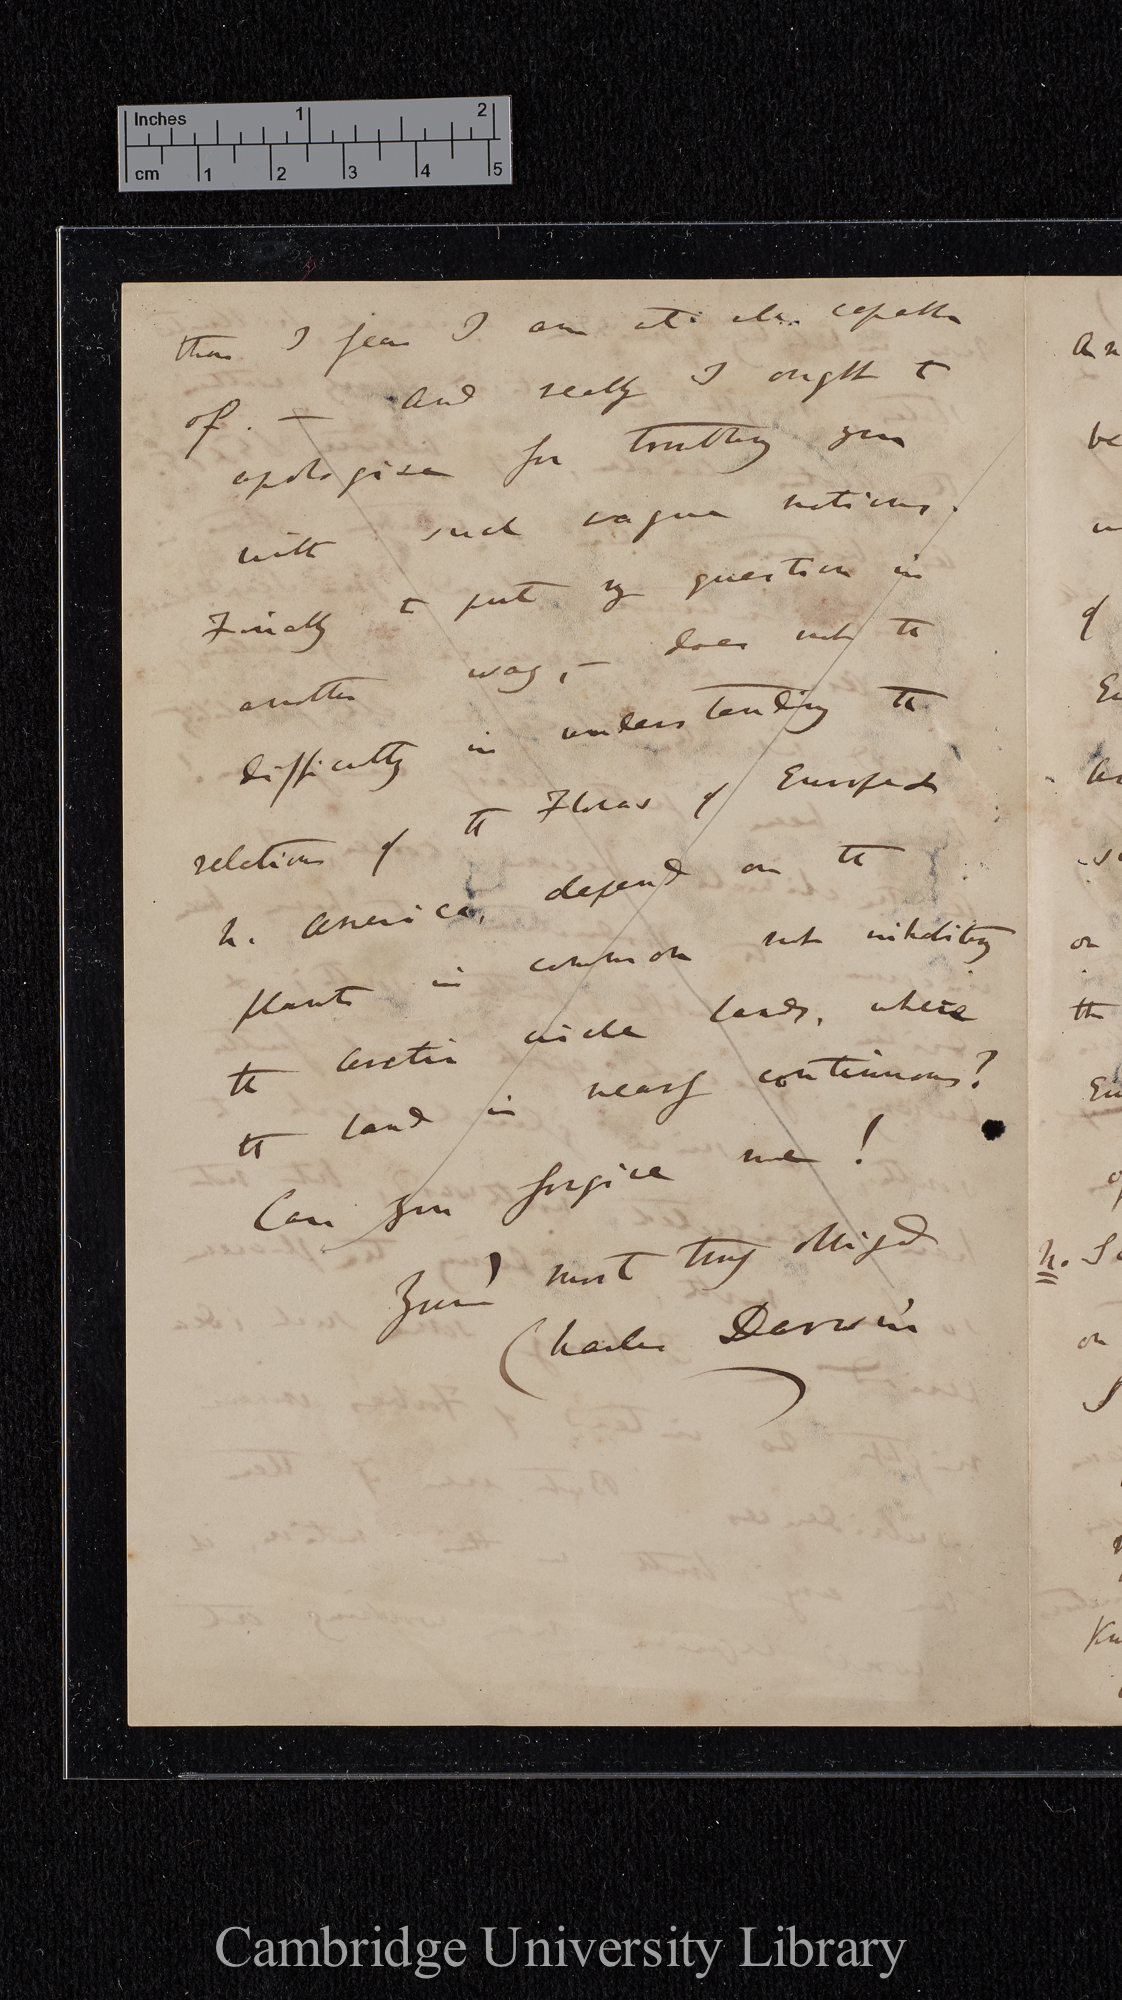 Inches 1 2
cm 1 2 3 4 5
than I fear I am at all capable
of. — And really I ought to
apologise for troubling you
with such vague notions.
Finally to put my question in
another way, — does not the
difficulty in understanding the
relations of the Floras of Europe &
N. America, depend on the
plants in common not inhabiting
the arctic circle lands, where
the land is nearly continuous?
Can you forgive me!
Your most truly obliged
Charles Darwin
Cambridge University Library